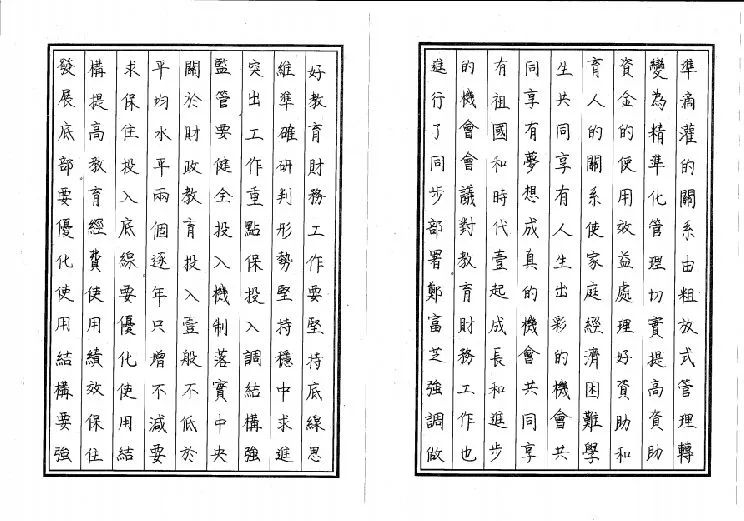 準滴灌的關系由粗放式管理轉
變為精準化管理切實提高資助
資金的使用效益處理好資助和
育人的關系使家庭經濟困難學
生共同享有人生出彩的機會共
同享有夢想成真的機會共同享
有祖國和時代壹起成長和進步
的機會會議對教育財務工作也
進行了同步部署鄭富芝強調做
好教育財務工作要堅持底線思
維準確研判形勢堅持穩中求進
突出工作重點保投入調結構強
監管要健全投入機制落實中央
關於財政教育投入壹般不低於
平均水平兩個逐年只增不減要
求保住投入底線要優化使用結
構提高教育經費使用績效保住
發展底部要優化使用結構要強